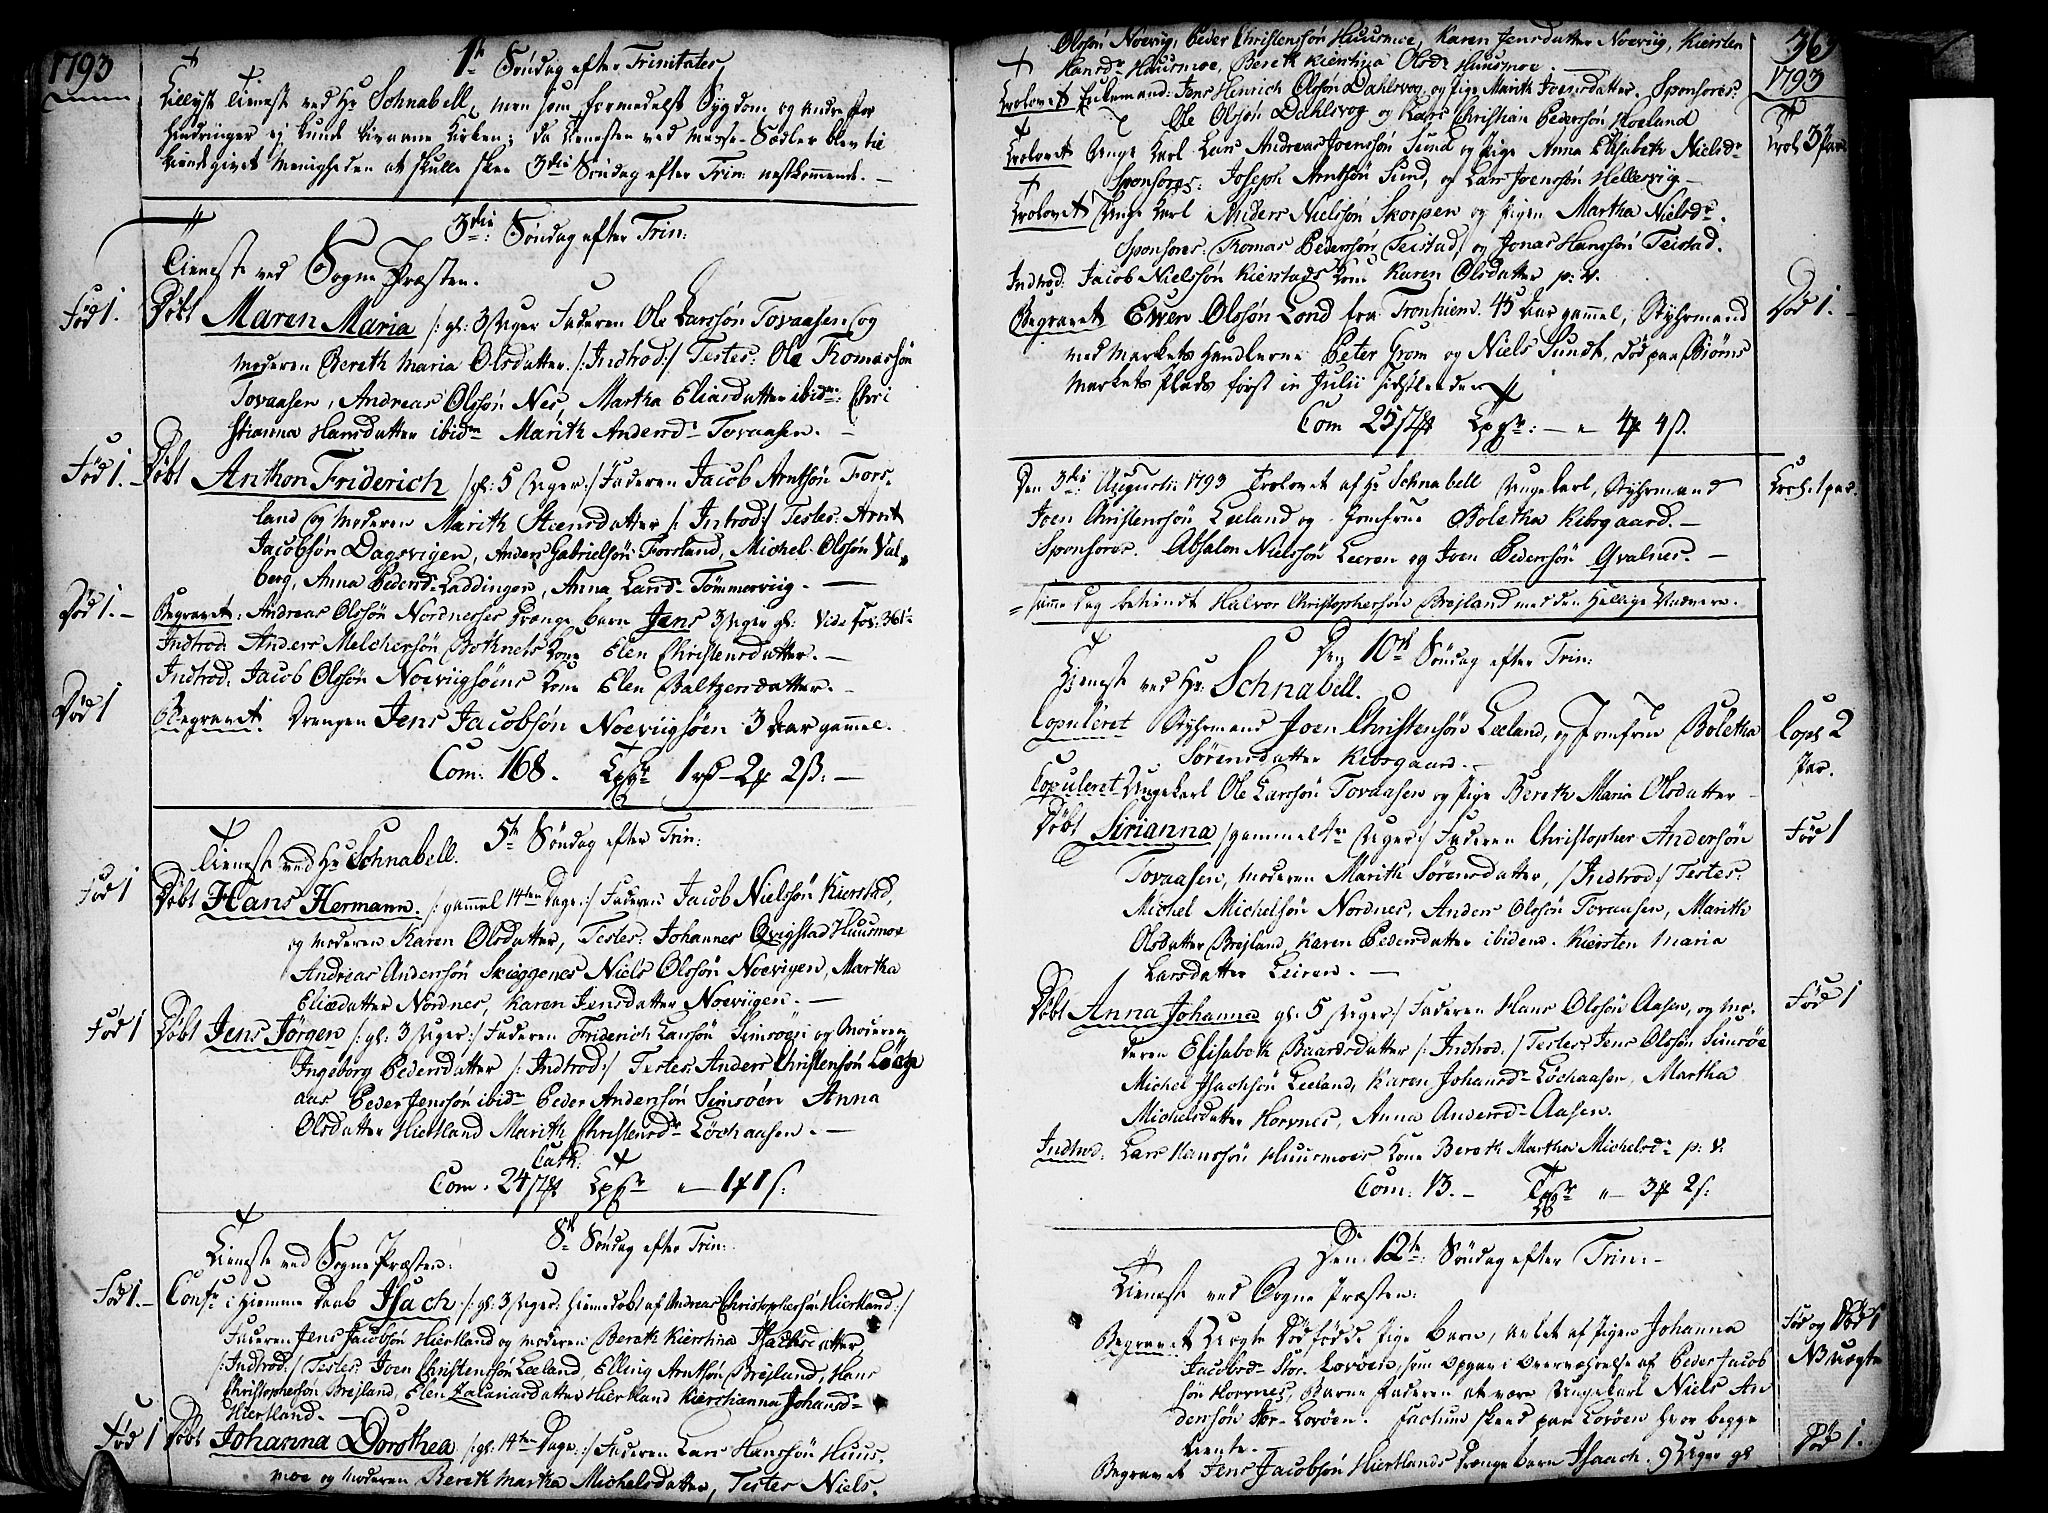 1793
1te Søndag efter Trinitates
Tillyst Tieneste ved Hr Schnabell, men som formedelst Sygdom og andre
Hindringer ej kunde bivaane Kirken; da Tienesten ved Messe-Sædler blev til
kiendegivet Menigheden at skulle skee 3die Søndag efter Trin: nestkommende. –
3die: Søndag efter Trin:
Tieneste ved Sogne Præsten.
Fød 1. Døbt Maren Maria /: gl: 3 Uger Faderen Ole Larssøn Tovaasen og
Moderen Bereth Maria Olsdatter. /: Indtrod :/ Testes: Ole Thomassøn
Tovaasen, Andreas Olssøn Nes, Martha Eliasdatter ibidm: Chri
stianna Hansdatter ibidm Marith Andersdr Tovaasen. –
Fød 1. Døbt Anthon Friderich /gl: 5 Uger :/ Faderen Jacob Arntsøn Fors,
land og Moderen Marith Steensdatter /: Introd :/ Testes: Arnt
Jacobsøn Dagsvigen, Anders Gabrielsøn Forsland, Michel Olssøn Val,
berg, Anna Pedersdr Laddingen, Anna Larsdr Tømmerviig. –
Død 1. – Begravet: Andreas Olssøn Nordneses Drænge barn Jens 3 Uger gl: Vide fol: 361
Indtrod: Anders Melchersøn Botknets Kone Elen Christensdatter. –
Indtrod: Jacob Olssøn Noeviigsøens Kone Elen Baltzersdatter. –
Død 1 Begravet Drengen Jens Jacobsøn Noeviigsøen 3 Aar gammel.
Com: 168. 1 rd – 2 2ß: –
5te Søndag efter Trin:
Tieneste ved Hr Schnabell.
Fød 1 Døbt Hans Hermann. /: gammel 14ten Dage :/ Faderen Jacob Nielssøn Kierstad,
og Moderen Karen Olsdatter, Testes: Johannes Qvigstad Huusmoe
Andreas Anderssøn Skieggenes Niels Olssøn Noevigen, Martha
Eliædatter Nordnes, Karen Jensdatter Noeviigen. –
Fød 1 Døbt Jens Jørgen /: gl: 3 Uger :/ Faderen Friderich Larssøn Simsøen og Moderen
Ingeborg Pedersdatter /: Indtrod :/ Testes: Anders Christensøn
aas Peder Jenssøn ibidm Peder Anderssøn Simsøen Anna
Olsdatter Hiertland Marith Christensdr Løchaasen. –
Cath:
Com. 24
8de Søndag efter Trin:
Tieneste ved Sogne Præsten:
Fød 1. – Confr i Hiemme Daab Isach /: gl: 3 Uger: Hiemedøbt af Andreas Christophersøn Hiertland :/
Faderen Jens Jacobsøn Hiertland og Moderen Bereth Kierstina Isachsdatter
/: Indtrod :/ Testes: Joen Christenssøn Leeland, Elling Arntsøn Brejland, Hans
Christophersøn Brejland, Elen Zakariasdatter Hiertland Kierstianna Johansdr
Hiertland. –
Fød 1 Døbt Johanna Dorothea /: gl: 14ten Dage :/ Faderen Lars Hanssøn Huus,
moe og Moderen Bereth Martha Michelsdatter, Testes Niels.
Olssøn Noeviig, Peder Christenssøn Huusmoe, Karen Jensdatter Noeviig, Kiersten
Hansdr Huusmoe, Bereth Kierstina Olsdr Huusmoe.
1793
Trolovet Enkemand: Jens Hinrich Olssøn Dahlsvog og Pige Marith Joensdatter. Sponsores:
Ole Olssøn Dahlsvog og Lars Christian Pederssøn Hoeland
Trol 3 Par
Trolovet Unge Karl Lars Andreas Joenssøn Sund og Pige Anna Elisabeth Nielsdr
Sponsores: Joseph Arntsøn Sund, og Lars Joenssøn Hellesviig –
Trolovet Unge Karl Anders Nielssøn Skorpen og Pigen Martha Nielsdr.
Sponsores: Thomas Pederssøn Teistad, og Jonas Hanssøn Teistad.
Indtrod: Jacob Nielssøn Kierstads Kone Karen Olsdatter p: v.
Begravet Ewen Olssøn Lond fra Tronhiem. 45 Aar gammel, Styhrmand Død 1. –
med Markets Handlerne Peter Grom og Niels Sundt, Død paa Biørns
Markets Plads først in Julii
Com 25 4 4ß.
Den 3die: Augusti: 1793 Trolovet af Hr Schnabell Ungekarl, Styhrmand Troel: 1 par.
Joen Christenssøn Leeland og Jomfrue Boletha Kibsgaard. –
Sponsores. Absalon Nielssøn Leeren og Joen Pederssøn Qvalnes. –
Samme Dag betient Halvor Christophersøn Brejland med den Hellige Nadvere.
Den 10de Søndag efter Trin:
Tieneste ved Hr: Schnabell.
Copuleret Styhrmand Joen Christensøn Leeland, og Jomfrue Boletha Copl 2
Sørensdatter Kibsgaard. – Par.
Copuleret Ungekarl Ole Larssøn Tovaasen og Pige Bereth Maria Olsdatter
Døbt Sirianna /gammel 4re Uger :/ Faderen Christopher Anderssøn Fød 1
Tovaasen, Moderen Marith Sørensdatter, /Indtrod :/ Testes:
Michel Michelsøn Nordnes, Anders Olssøn Tovaasen, Marith
Olsdatter Brejland, Karen Pedersdatter ibidem. Kiersten Maria
Larsdatter Leiren. –
Døbt Anna Johanna gl: 5 Uger :/ Faderen Hans Olssøn Aasen, og Mo, Fød 1
deren Elisabeth Baardsdatter /: Indtrod :/ Testes: Jens Olssøn Simsøe
Michel Isachsøn Leeland, Karen Johansdr Løchaasen, Martha
Michelsdatter Horvnes, Anna Andersdr Aasen.
Indtrod: Lars Hanssøn Huusmoes Kone Bereth Martha Michelsdr p: v.
Com: 13. – 3 2ß:
Den 12te: Søndag efter Trin: –
Tieneste ved Sogne Præsten:
Begravet Uægte Dødfødde Pige Barn, avlet af Pigen Johanna Fød og Død 1
Jacobsdr Stor Lovøen, som opgav i Overværelse af Peder Jacob NB uægte
søn Horvnes, Barne Faderen at være Ungekarl Niels An
derssøn Stor-Lovøen. Factum skeed paa Lovøen hvor begge
tiente. –
Begravet Jens Jacobsøn Hiertlands Drænge barn Isaach. 9 Uger gl Død 1.